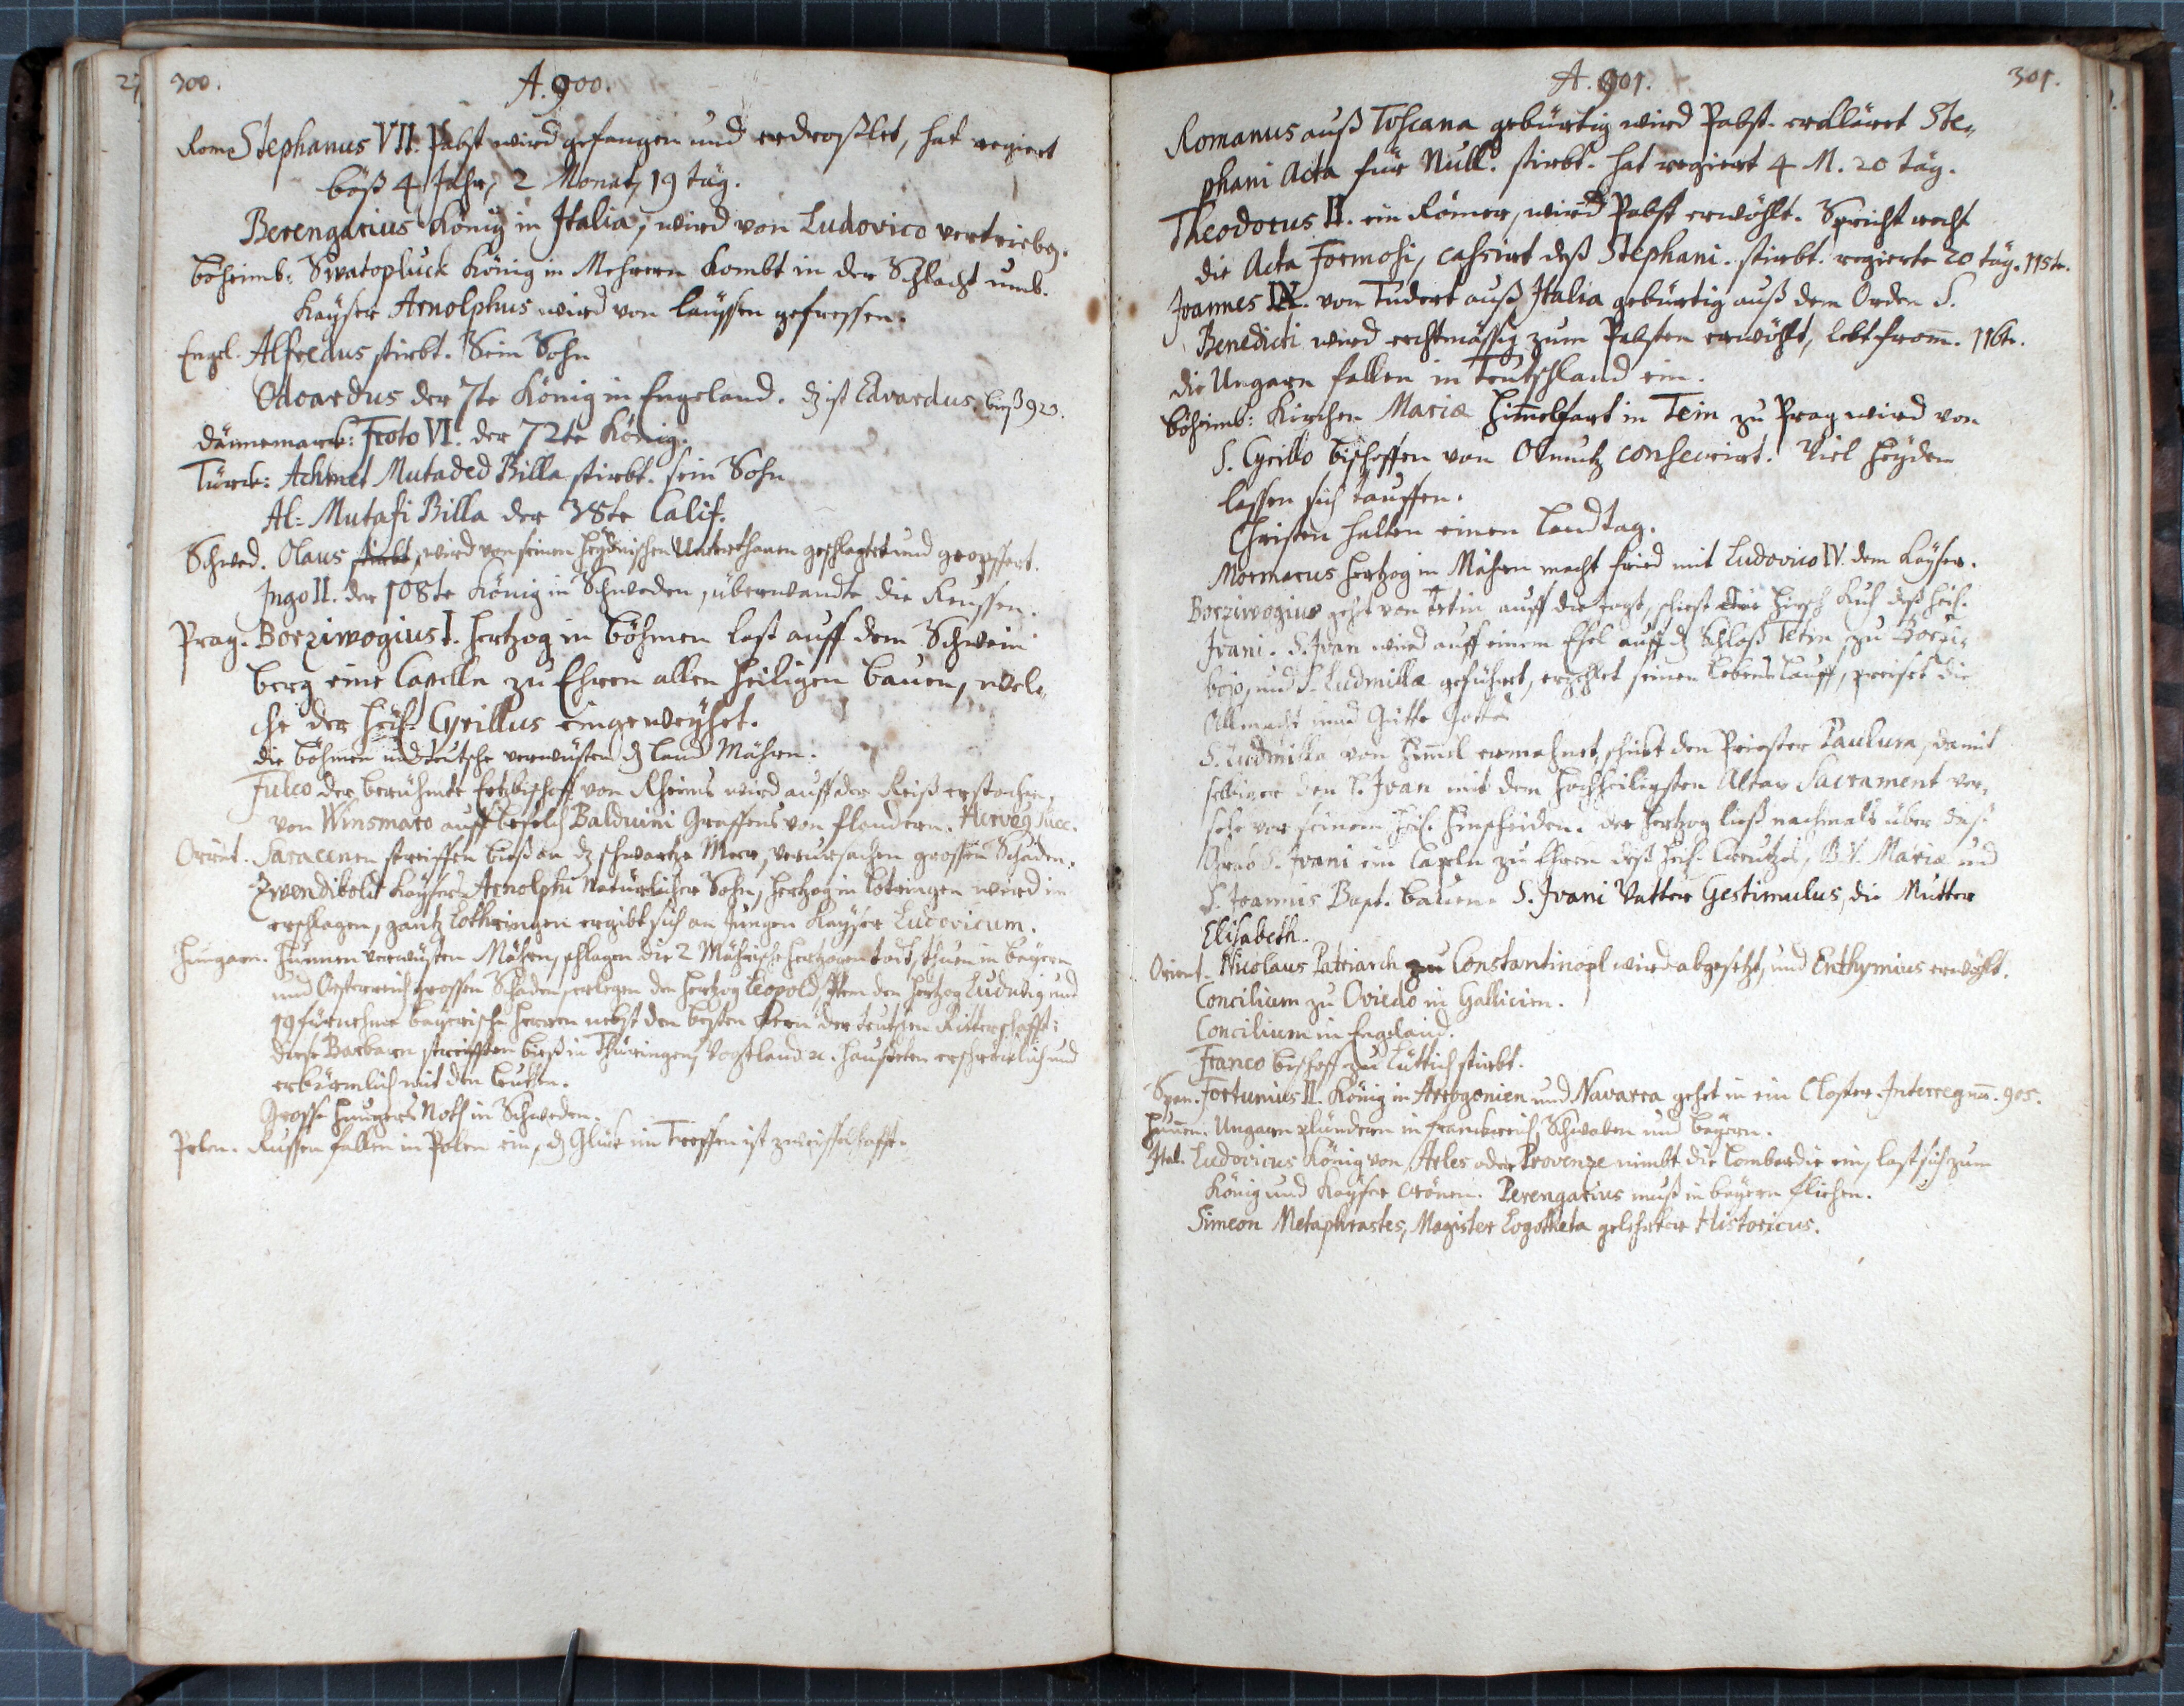 300.
A. 900.
Rom. Stephanus VII. Pabst wird gefangen und erdroßlet, hat regiert
böß 4 Jahr, 2 Monat, 19 täg.
Berengarius König in Italia, wird von Ludovico vertrieben.
Böheimb: Swatopluck König in Mehrern kombt in der Schlacht umb.
Kayser Arnolphus wird von läussen gefressen.
Engel. Alfredus stirbt. Sein Sohn
Odoardus der 7te König in Engeland. dz ist Edvardus, bieß 923.
Dännemarck: Froto VI. der 72te König.
Türck: Achmet Mutaded Billa stirbt. sein Sohn
Al-Mutafi Billa der 38te Calif.
Schwed. Olaus stirbt, wird von seinen heydnischen Unterthanen geschlachtet und geopffert.
Ingo II. der 108te König in Schweden, überwandte die Reussen.
Prag. Borziwogius I. Hertzog in Böhmen last auff dem Schwein
berg eine Capelln zu Ehren allen Heiligen bauen, wel-
che der Heil. Cyrillus eingeweyhet.
die Böhmen und teutsche verwüsten dz land Mähren.
Fulco der berühmte Ertzbischoff von Rheims wird auff der Reiß erstochen,
von Winsmaro auff befelch Balduini Graffens von Flandern. Herveg succ.
Orient. Saracenen streiffen bieß an dz schwartze Meer, verursachen grossen Schaden.
Zwendibold Kaysers Arnolphi Natürlicher Sohn, Hertzog in Lotringen wird in
erschlagen, gantz Lothringen ergibt sich an jungen Kayser Ludovicum.
Hungarn. Hunnen verwüsten Mähren, schlagen die 2 Mährische Hertzogen todt, thuen in Bayern
und Oesterreich grossen Schaden, erlegen den Hertzog Leopold, Item den Hertzog Ludwig und
19 fürnehme bayerische Herren nebst den besten Kern der teutschen Ritterschafft:
diese Barbarn streifften bieß in Thüringen, Vogtland u. hauseten erschröcklich und
erbärmlich mit den leuthen.
Grosse Hungers Noth in Schweden.
Polen. Russen fallen in Polen ein, dz Glück im Treffen ist zweiffelhafft.
301.
A. 901.
Romanus auß Toscana gebürtig wird Pabst. erkläret Ste-
phani Acta für Null. stirbt. hat regiert 4 M. 20 täg.
Theodorus II. ein Römer, wird Pabst erwöhlt. Spricht recht
die Acta Formosi, cassirt deß Stephani. stirbt. regierte 20 täg. 115te.
Joannes IX. von Tudert auß Italia gebürtig auß dem Orden S.
Benedicti wird rechtmässig zum Pabsten erwöhlt, lebt from̅. 116te.
die Ungarn fallen in Teutschland ein.
Böheimb: Kirchen Mariæ Him̅elfart in Tein zu Prag wird von
S. Cyrillo bischoffen von Olmutz consecrirt. Viel Heyden
lassen sich tauffen.
Christen halten einen Landtag.
Mormarus Hertzog in Mähren macht fried mit Ludovico IV. dem Kayser.
Borziwogius gehet von Tetin auff die Jagt, schiest die Hirsch Kuh deß heil.
Ivani. S. Ivan wird auff einem Esel auff dz Schloß Tetin zu Borzi-
vojo, und S. Ludmilla geführt, erzehlet seinen Lebens Lauff, preiset die
Allmacht und Gütte Gottes.
S. Ludmilla von Him̅el ermahnet, schickt den Priester Paulum, damit
selbiger den S. Ivan mit dem Hochheiligsten Altar Sacrament ver-
sehe vor seinem Heil. Hinscheiden. der Hertzog ließ nachmals über daß
Grab S. Ivani ein Capeln zu Ehren deß Heil. Creutzes, B.V. Mariæ und
S. Joannis Bapt. bauen. S. Ivani Vatter Gestimulus, die Mutter
Elisabeth.
Orient. Nicolaus Patriarch zu Constantinopl wird abgesetzt, und Enthymius erwöhlt.
Concilium zu Oviedo in Gallicien.
Concilium in Engeland.
Franco bischoff zu Lüttich stirbt.
Span. Fortunius II. König in Arrogonien und Navarra gehet in ein Closter. Interregnu̅. 905.
Hun̅en. Ungarn plündern in Franckreich, Schwaben und bayern.
Ital. Ludovicus König von Arles oder Provenze nimbt die Lombardie ein, last sich zum
König und Kayser crönen. Berengarius muß in bayern fliehen.
Simeon Metaphrastes, Magister Logotheta gelehrter Historicus.